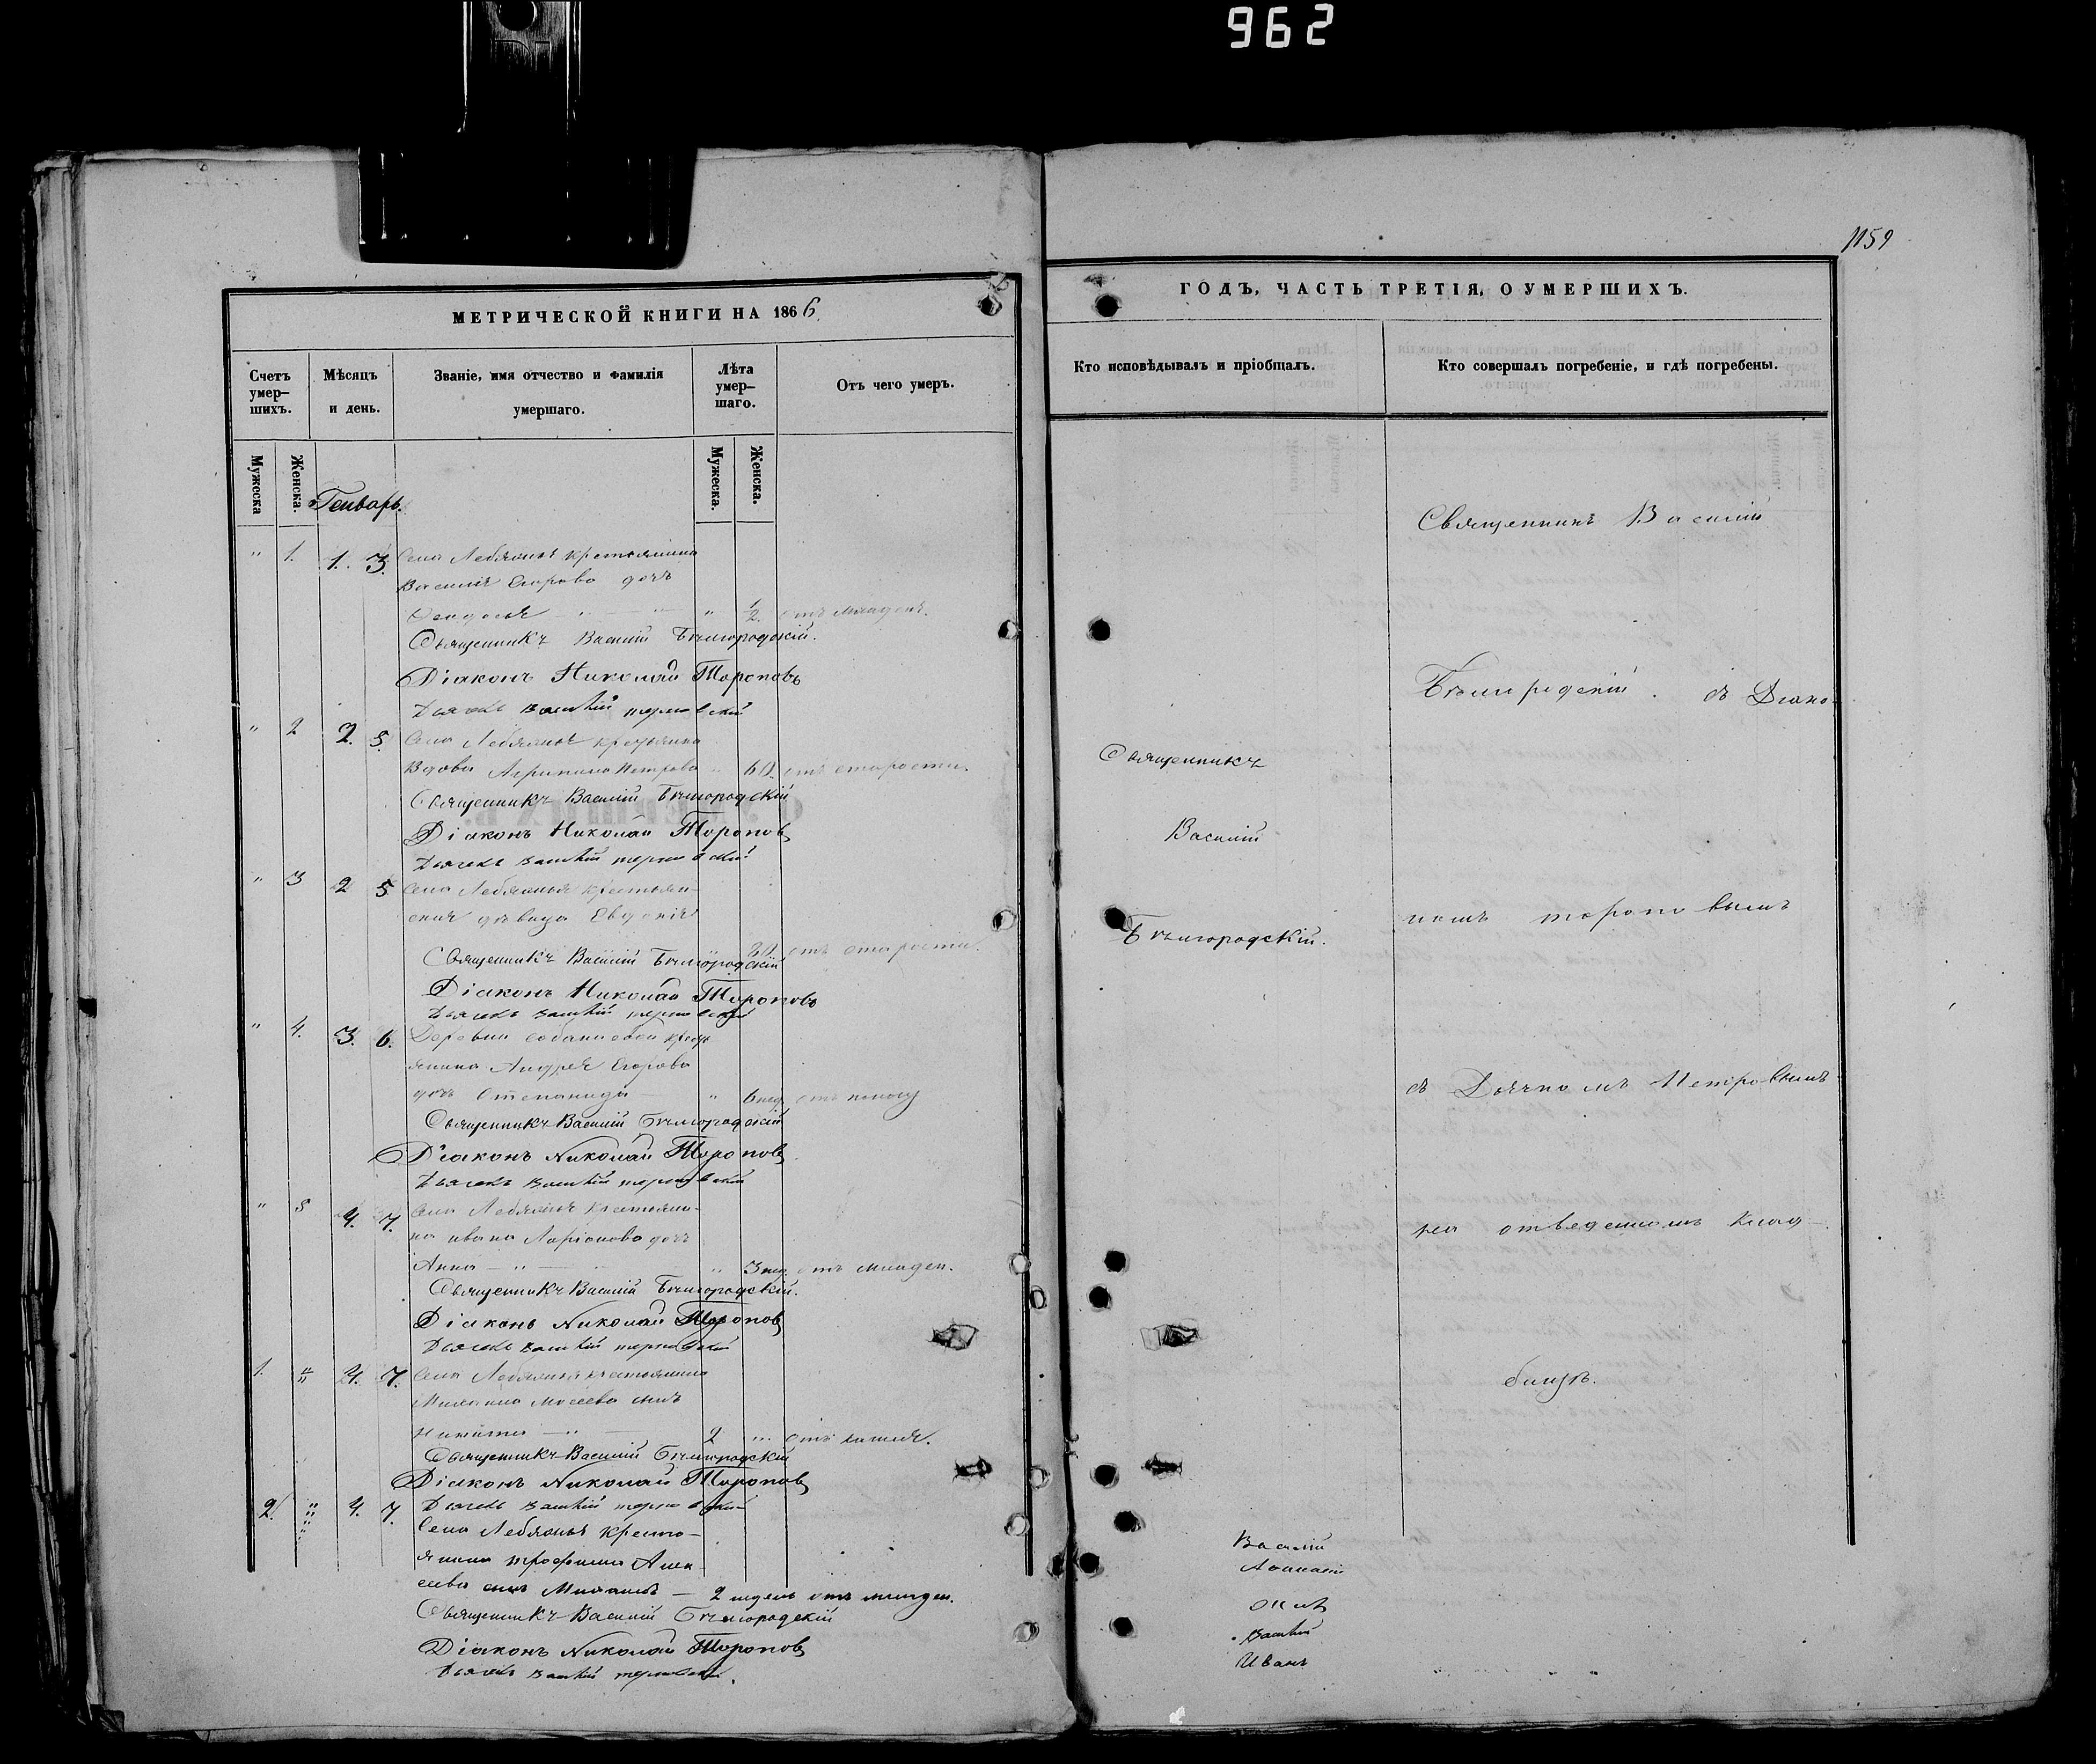 962
1159
МЕТРИЧЕСКОЙ КНИГИ НА 1866
Счетъ умер–шихъ.
Мѣсяцъ и день.
Званіе, имя отчество и фамилія умершаго.
Лѣта умер–шаго.
Отъ чего умеръ.
Мужеска
Женска.
Мужеска.
Женска.
Генварь.
" 1. 1. 3. Села Лебяжья крестьянина
Василія Егорова дочь
" 1/2. отъ младен.
Священникъ Василій Бѣлгородскій.
Діаконъ Николай Тороповъ
Дьячекъ Василій
" 2 2. 5. Села Лебяжья
Вдова Агрипина Петрова " 60. отъ старости.
Священникъ Василій Бѣлгородскій
Діаконъ Николай Тороповъ
Дьячекъ Василій
" 3 2 5 Села Лебяжья крестьян–
ская дѣвица Евдокія
отъ старости.
Священникъ Василій Бѣлгородскій
Діаконъ Николай Тороповъ
Дьячекъ Василій
" 4. 3. 6. Деревни
янина Андрея Егорова
дочь Степанида " 6 нед. отъ поносу
Священникъ Василій Бѣлгородскій
Діаконъ Николай Тороповъ
Дьячекъ Василій
" 5 4. 7. Села Лебяжья крестьяни–
на Ивана Ларіонова дочь
Анна — " — " 3 нед. отъ младен.
Священникъ Василій Бѣлгородскій.
Діаконъ Николай Тороповъ
Дьячекъ Василій
1. " 4. 7. Села Лебяжья крестьянина
Михаила Мосеева сынъ
Никита — " 2 " отъ кашля.
Священникъ Василій Бѣлгородскій
Діаконъ Николай Тороповъ
Дьячекъ Василій
2. " 4. 7. Села Лебяжья кресть–
янина Трофима Алек–
сѣева сынъ Михаилъ — 2 недель отъ младен.
Священникъ Василій Бѣлгородскій
Діаконъ Николай Тороповъ
Дьячекъ Василій
ГОДЪ, ЧАСТЬ ТРЕТІЯ, О УМЕРШИХЪ.
Кто исповѣдывалъ и пріобщалъ.
Кто совершалъ погребеніе, и гдѣ погребены.
Священникъ
Василій
Бѣлгородскій.
Василій
Іванъ
Священникъ Василій
Бѣлгородскій. съ Діако–
номъ Тороповымъ
съ Дьячкомъ Петровымъ
на отведенномъ клад–
бищѣ.